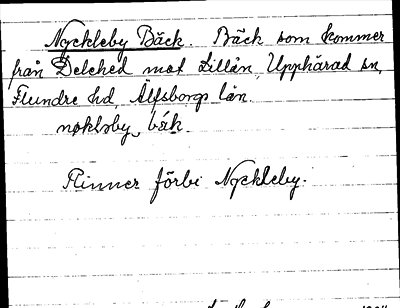 Nyckleby Bäck. Bäck som kommer
från Delehed mot Lillån, Upphärad sn,
Flundre hd, Älfsborgs län.
nøkləby, bäk.
Rinner förbi Nyckleby.